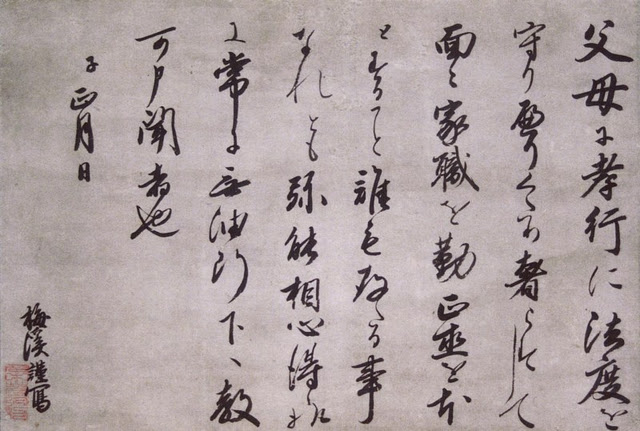 父母に孝行に法度を
守りへりくたり奢らすして
面々家職を勤正直を本
とすること誰も存たる事
なれとも弥能相心得
に常に無油断下々教
可申聞者也
子正月日
梅渓謹写